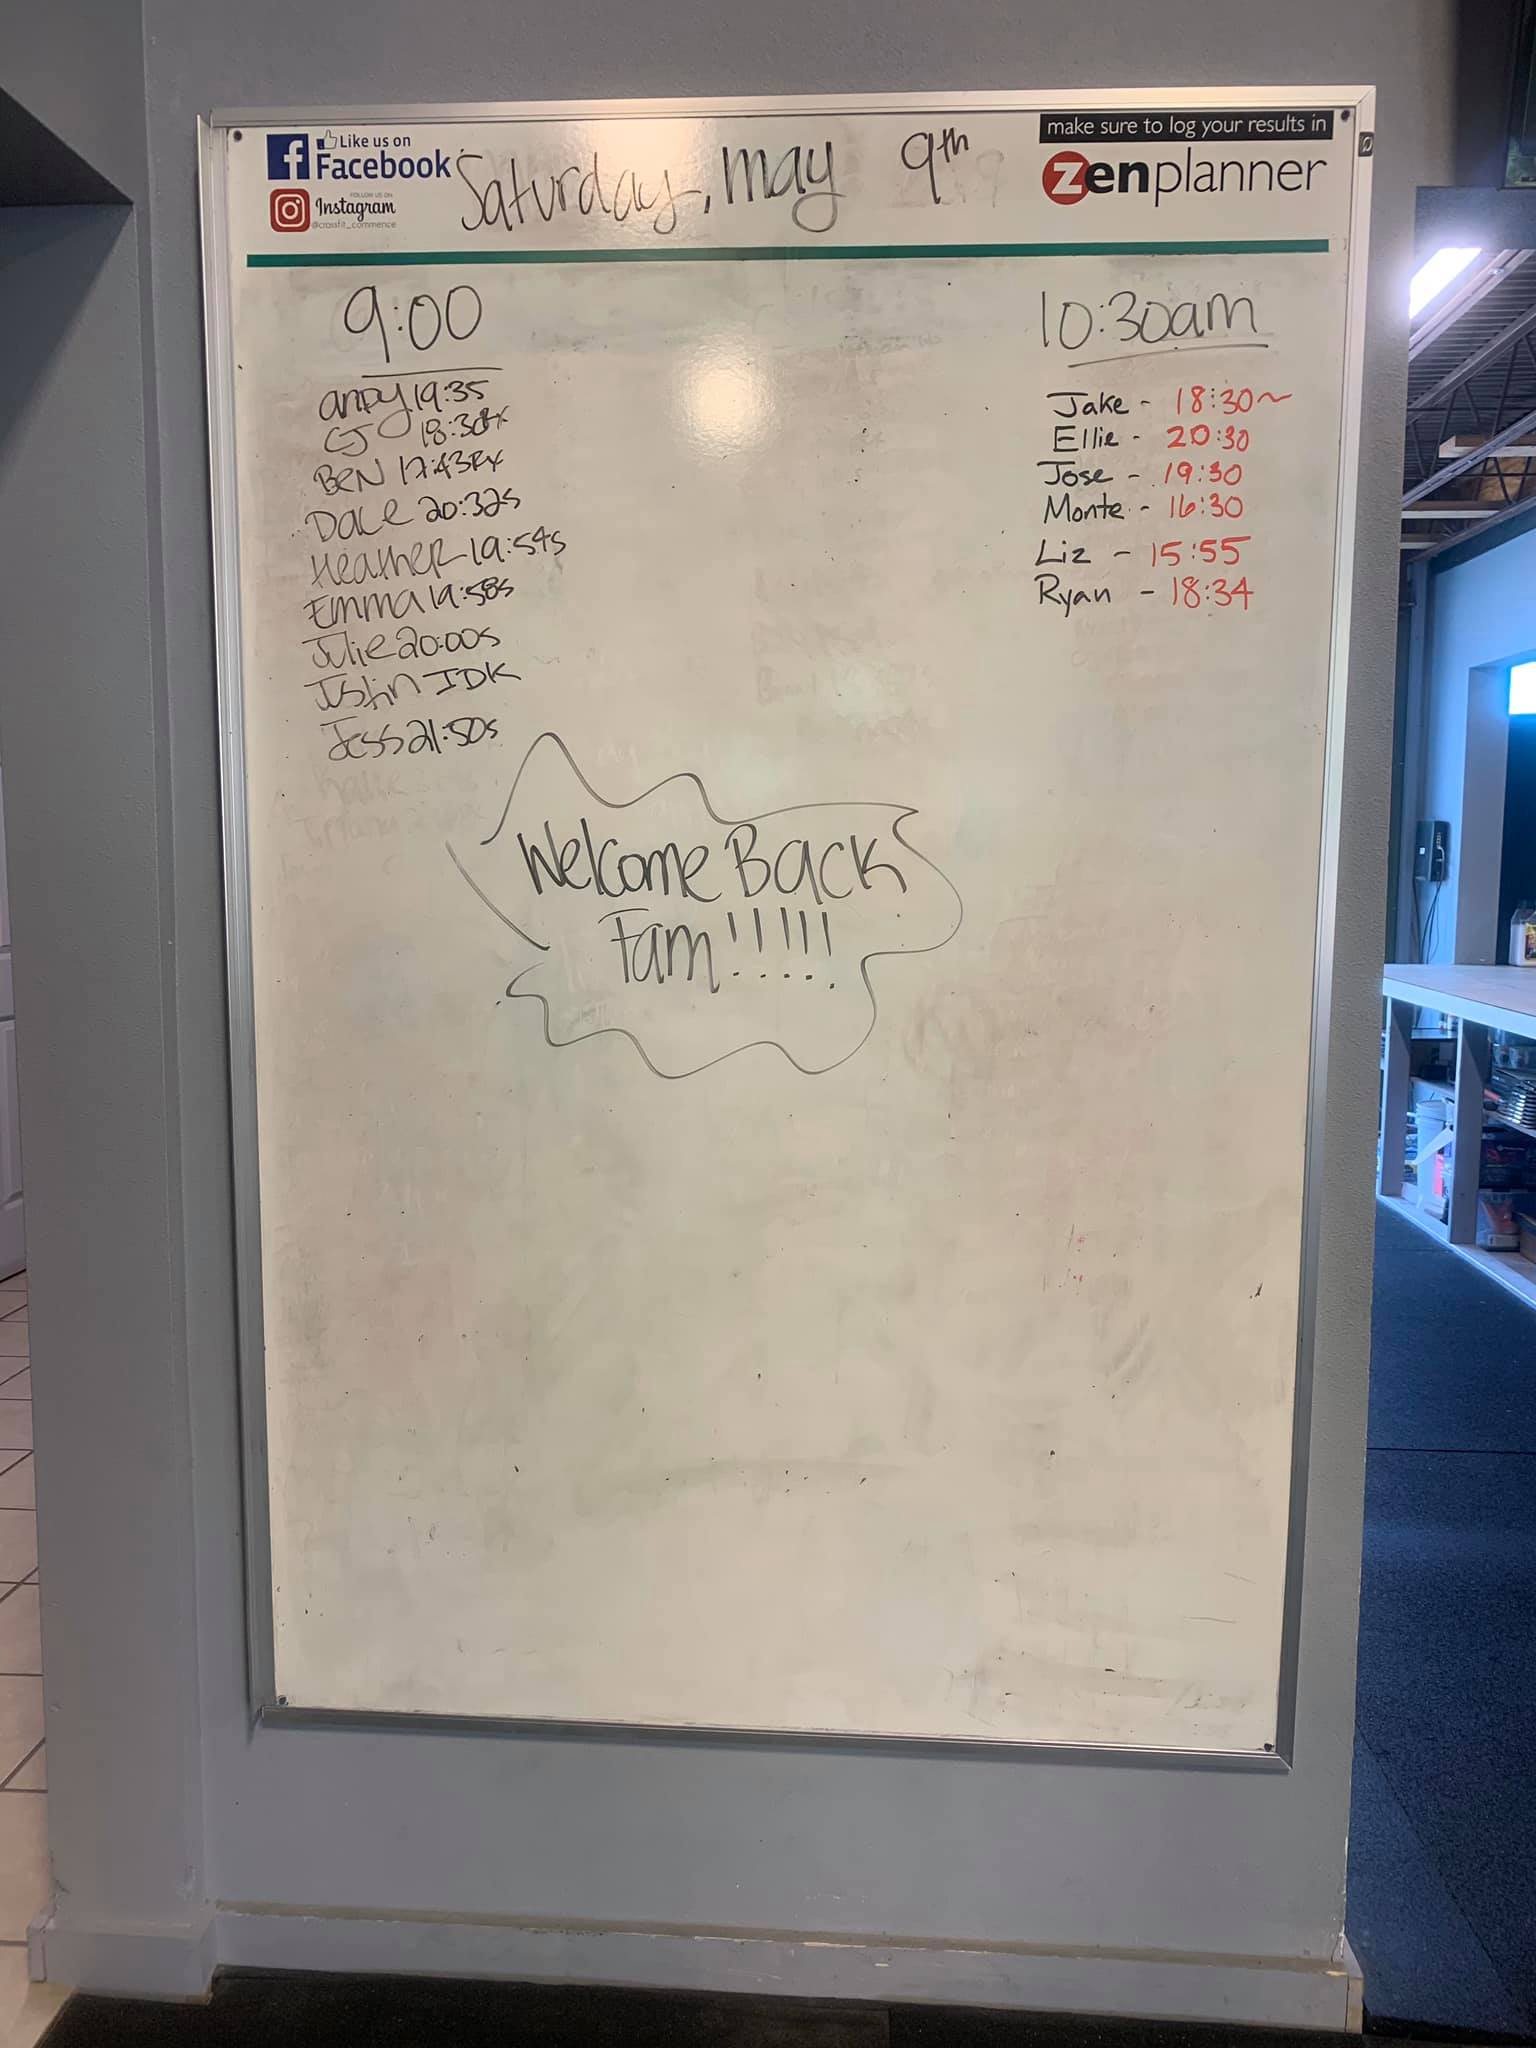 Like us on
Facebook
FOLLOW US ON
Instagram
@crossfit_commence
Saturday, may 9th
make sure to log your results in
zenplanner
9:00
Andy 19:35
CJ 18:30Rx
BEN 17:43Rx
Dale 20:32s
Heather 19:54s
Emma 19:58s
Julie 20:00s
Justin IDK
Jess 21:50s
10:30am
Jake - 18:30~
Ellie - 20:30
Jose - 19:30
Monte - 16:30
Liz - 15:55
Ryan - 18:34
Welcome Back
Fam!!!!!